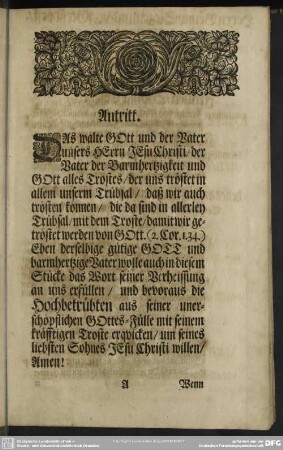 Antritt.
DAs walte GOtt und der Vater
unsers HErrn JEsu Christi/ der
Vater der Barmhertzigkeit und
GOtt alles Trostes/ der uns tröstet in
allem unserm Trübsal/ daß wir auch
trösten können/ die da sind in allerley
Trübsal/ mit dem Troste/ damit wir ge-
tröstet werden von GOtt. (2. Cor. 1. 3 4.)
Eben derselbige gütige GOTT und
barmhertzige Vater wolle auch in diesem
Stücke das Wort seiner Verheissung
an uns erfüllen/ und bevoraus die
Hochbetrübten aus seiner uner-
schöpflichen GOttes-Fülle mit seinem
kräfftigen Troste erqvicken/ um seines
liebsten Sohnes JEsu Christi willen/
Amen!
A Wenn
DFG